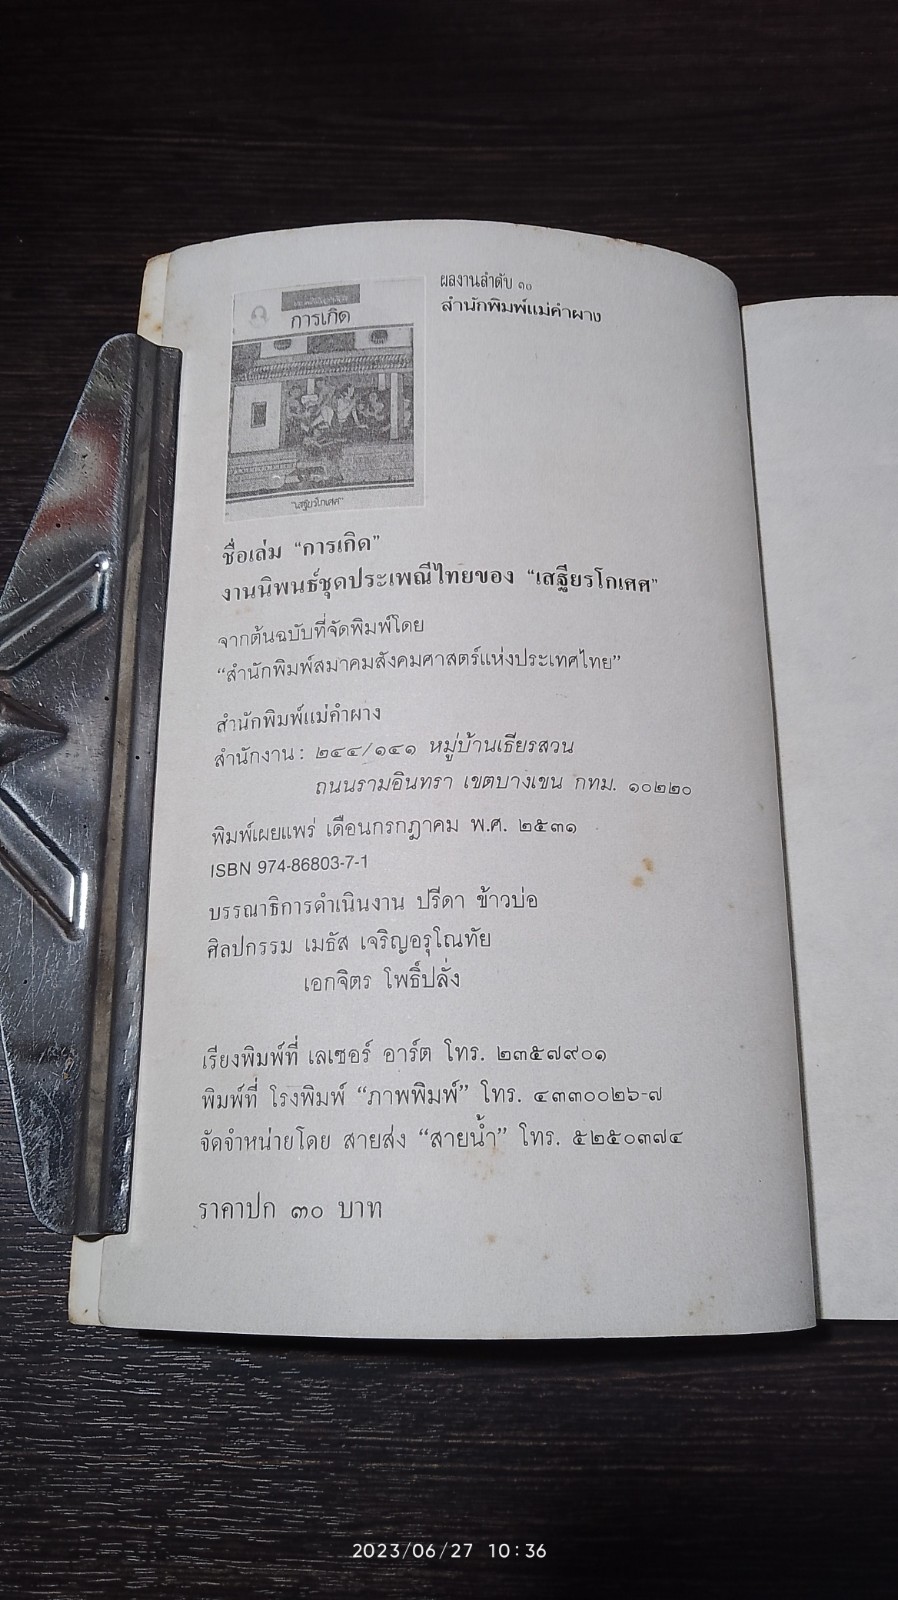 ผลงานลำดับ ๑๐
สำนักพิมพ์แม่คำผาง
การเกิด
"เสฐียรโกเศศ"
ชื่อเล่ม “การเกิด”
งานนิพนธ์ชุดประเพณีไทยของ “เสฐียรโกเศศ”
จากต้นฉบับที่จัดพิมพ์โดย
“สำนักพิมพ์สมาคมสังคมศาสตร์แห่งประเทศไทย”
สำนักพิมพ์แม่คำผาง
สำนักงาน : ๒๔๔/๑๔๑ หมู่บ้านเธียรสวน
ถนนรามอินทรา เขตบางเขน กทม. ๑๐๒๒๐
พิมพ์เผยแพร่ เดือนกรกฎาคม พ.ศ. ๒๕๓๑
ISBN 974-86803-7-1
บรรณาธิการดำเนินงาน ปรีดา ข้าวบ่อ
ศิลปกรรม เมธัส เจริญอรุโณทัย
เอกจิตร โพธิ์ปลั่ง
เรียงพิมพ์ที่ เลเซอร์ อาร์ต โทร. ๒๓๕๗๙๐๑
พิมพ์ที่ โรงพิมพ์ “ภาพพิมพ์” โทร. ๔๓๓๐๐๒๖-๗
จัดจำหน่ายโดย สายส่ง “สายน้ำ” โทร. ๕๒๕๐๓๗๔
ราคาปก ๓๐ บาท
2023/06/27 10:36